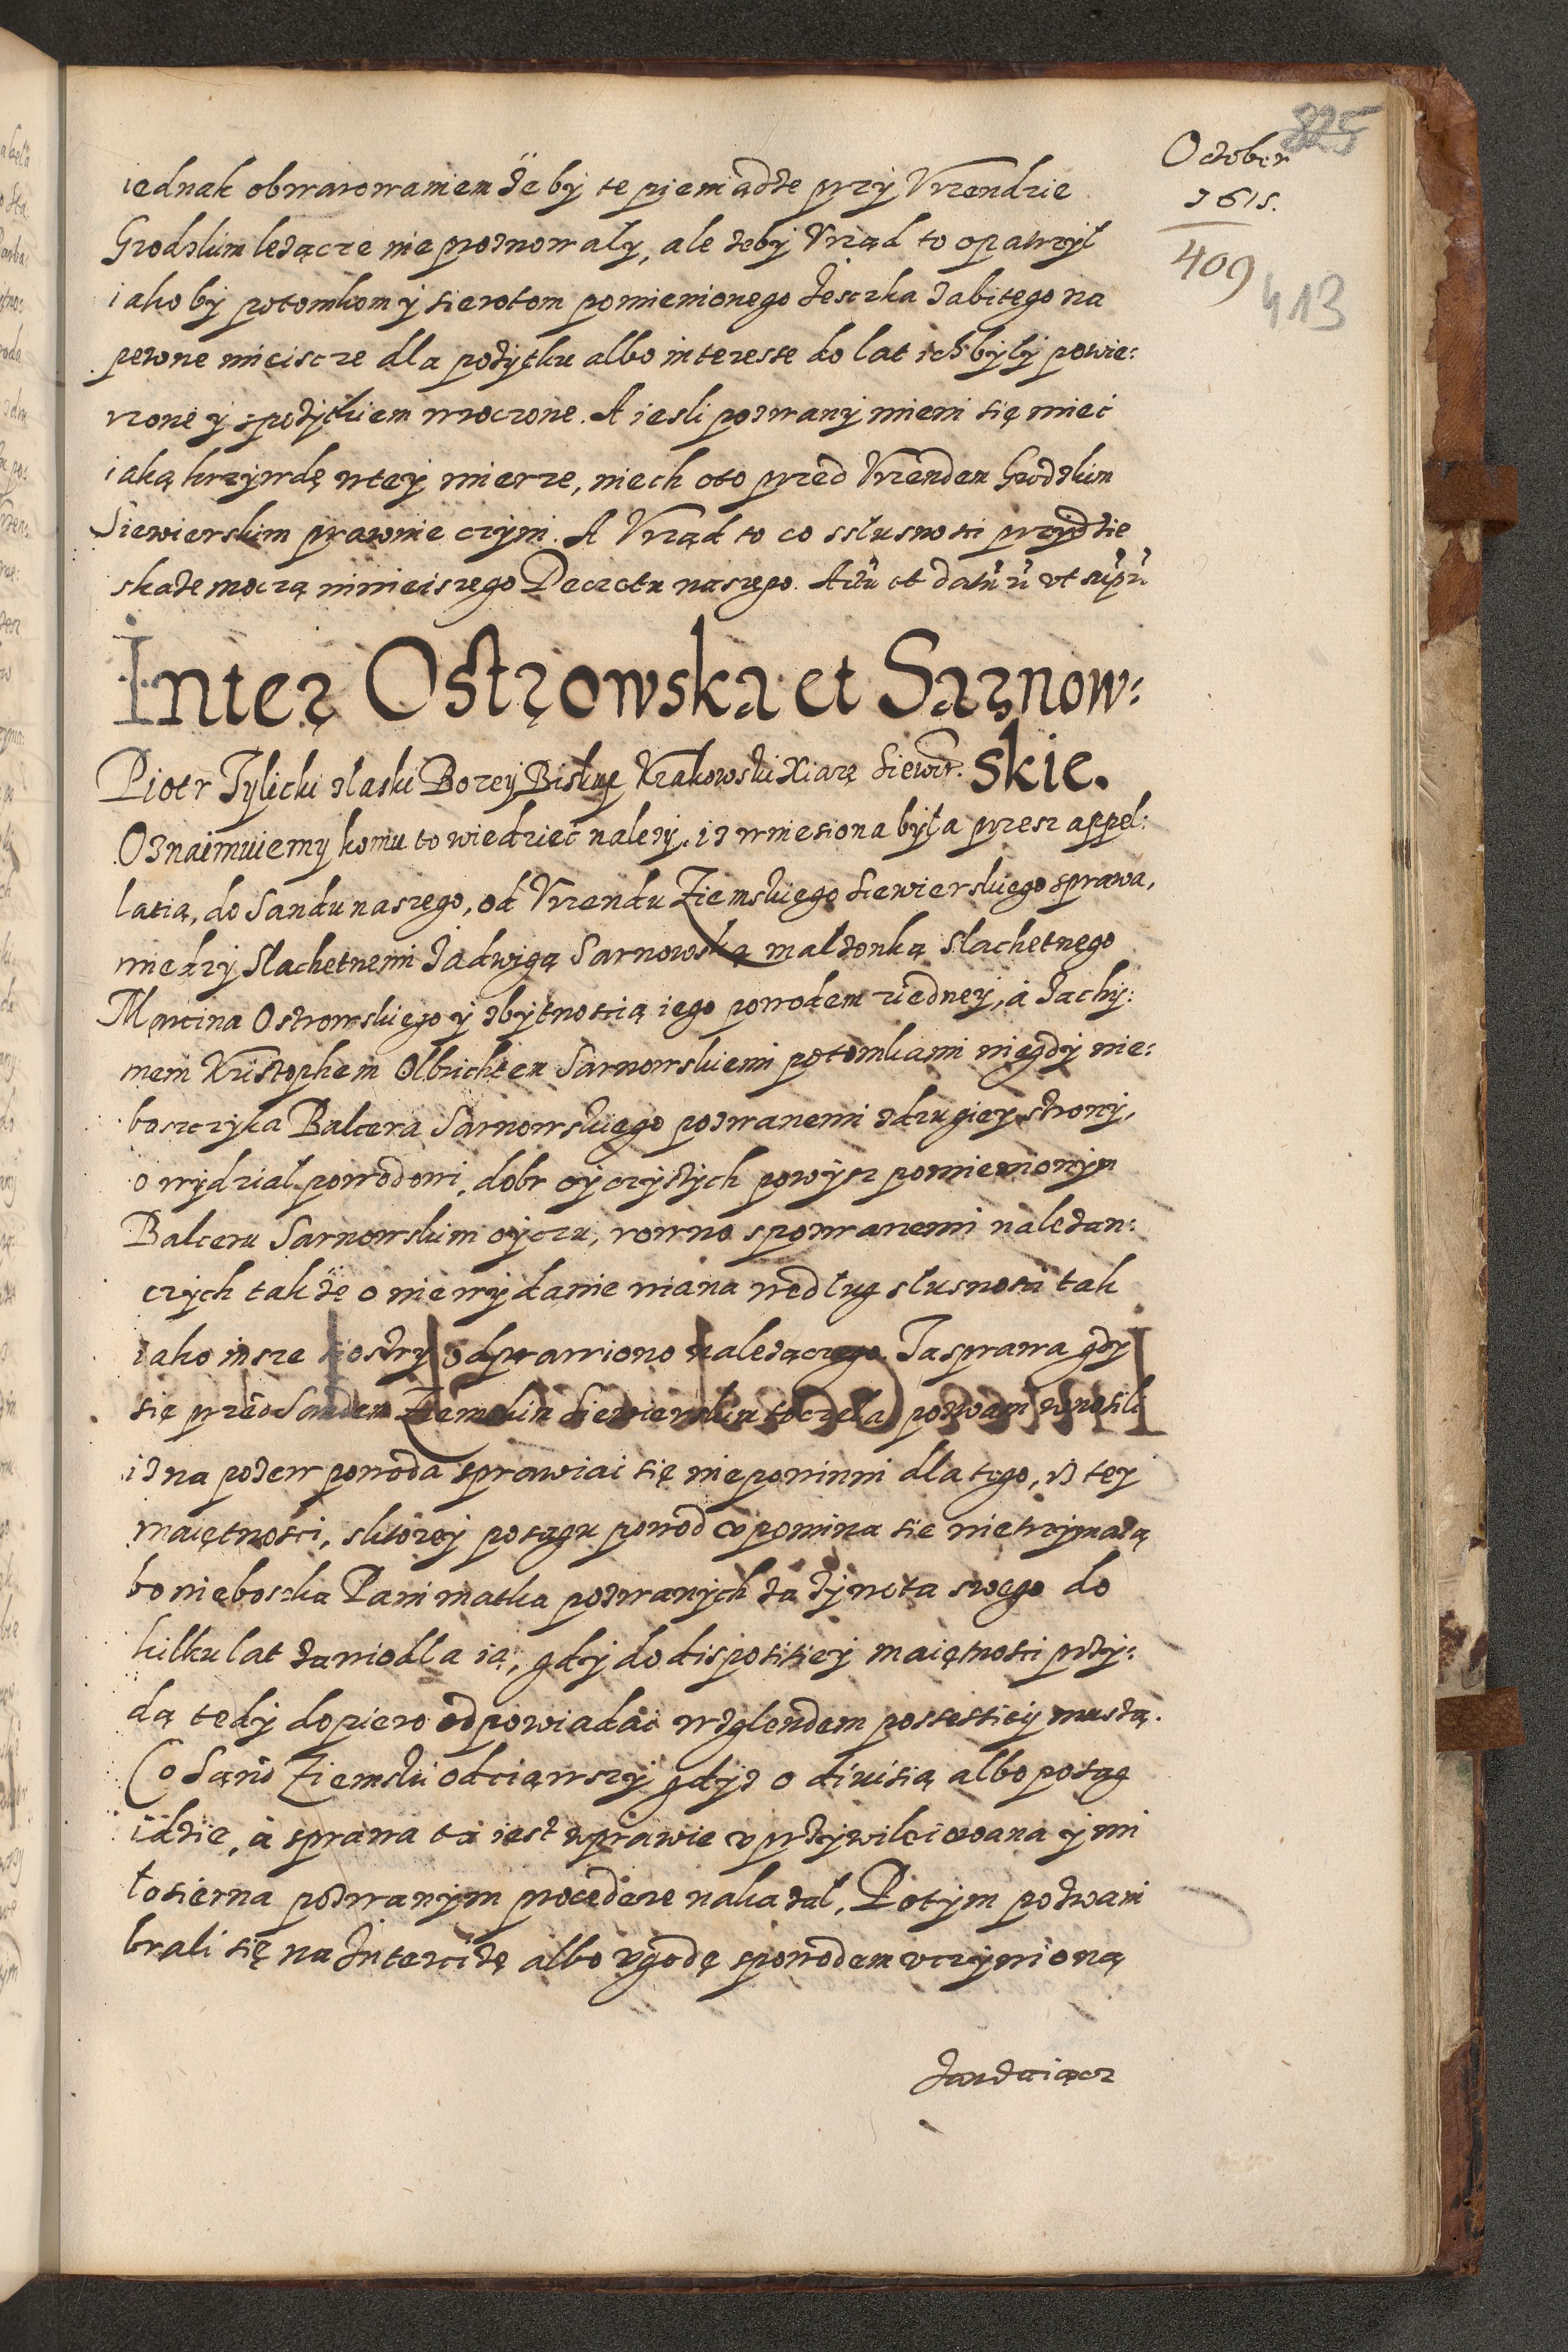 825
October
1615.
409
413
iednak obwarowaniem żeby te pieniądze przy Vrzendzie
Grodzkim leżącze nie prożnowały, ale żeby Vrząd to opatrzył
iako by potomkom y sierotom pomienionego Jeśczka zabitego na
pewne mieiscze dla pożytku albo interesse do lat ich były powie:
rzone y spożytkiem wroczone. A iesli pozwany mieni się mieć
iaką krzywdę wtey mierze, niech oto przed Vrzendem Grodzkim
Siewierskim prawnie czyni. A Vrząd to co sslusnosci przydzie
skaże moczą ninieiszego Decretu naszego. Actũ et datũ ũ vt supũ
Inter Ostrowska et Sarnow:
skie.
Piotr Tylicki zlaski Bozey Biskup Krakowski Xiazę Siewier.
Oznaimuiemy komu to wiedzieć należy, iz wniesiona była przesz appel:
latią, do Sandu naszego, od Vrzendu Ziemskiego Siewierskiego sprawa,
miedzy Slachetnemi Jadwigą Sarnowską malżonką Slachetnego
Marcina Ostrowskiego y zbytnoscią iego powodem ziedney, a Jachy:
mem Kristophem Olbrichtem Sarnowskiemi potomkami niegdy nie:
boszczyka Balcera Sarnowskiego pozwanemi zdrugiey strony,
o wydzial powodowi, dobr oyczystych powysz pomienionym
Balceru Sarnowskim oyczu, rowno spozwanemi należan:
czych także o niewydanie wiana według slusnosci tak
iako insze siostry odprawiono należączego. Ta sprawa gdy
się przed Sandem Ziemskim Siewierskim toczeła pozwani wnosili
iz na pozew powoda sprawiać się niepowinni dla tego, iż tey
maiętnosci, sktorey posagu powod vpomina sie nietrzymaią
bo nieboszka Pani matka pozwanych za żywota swego do
kilku lat zawiodla ią, gdy do dispositiey maiętnosci przy:
dą tedy dopiero odpowiadać wzglendem possessiey muszą.
Co Sand Ziemski odciąwszy gdyz o diuisią albo posag
idzie, a sprawa ta iest wprawie vprzywileiowana y mi
losierna pozwanym procedere nakazał, Potym pozwani
brali się na Intercizę albo vgodę spowodem vczynioną